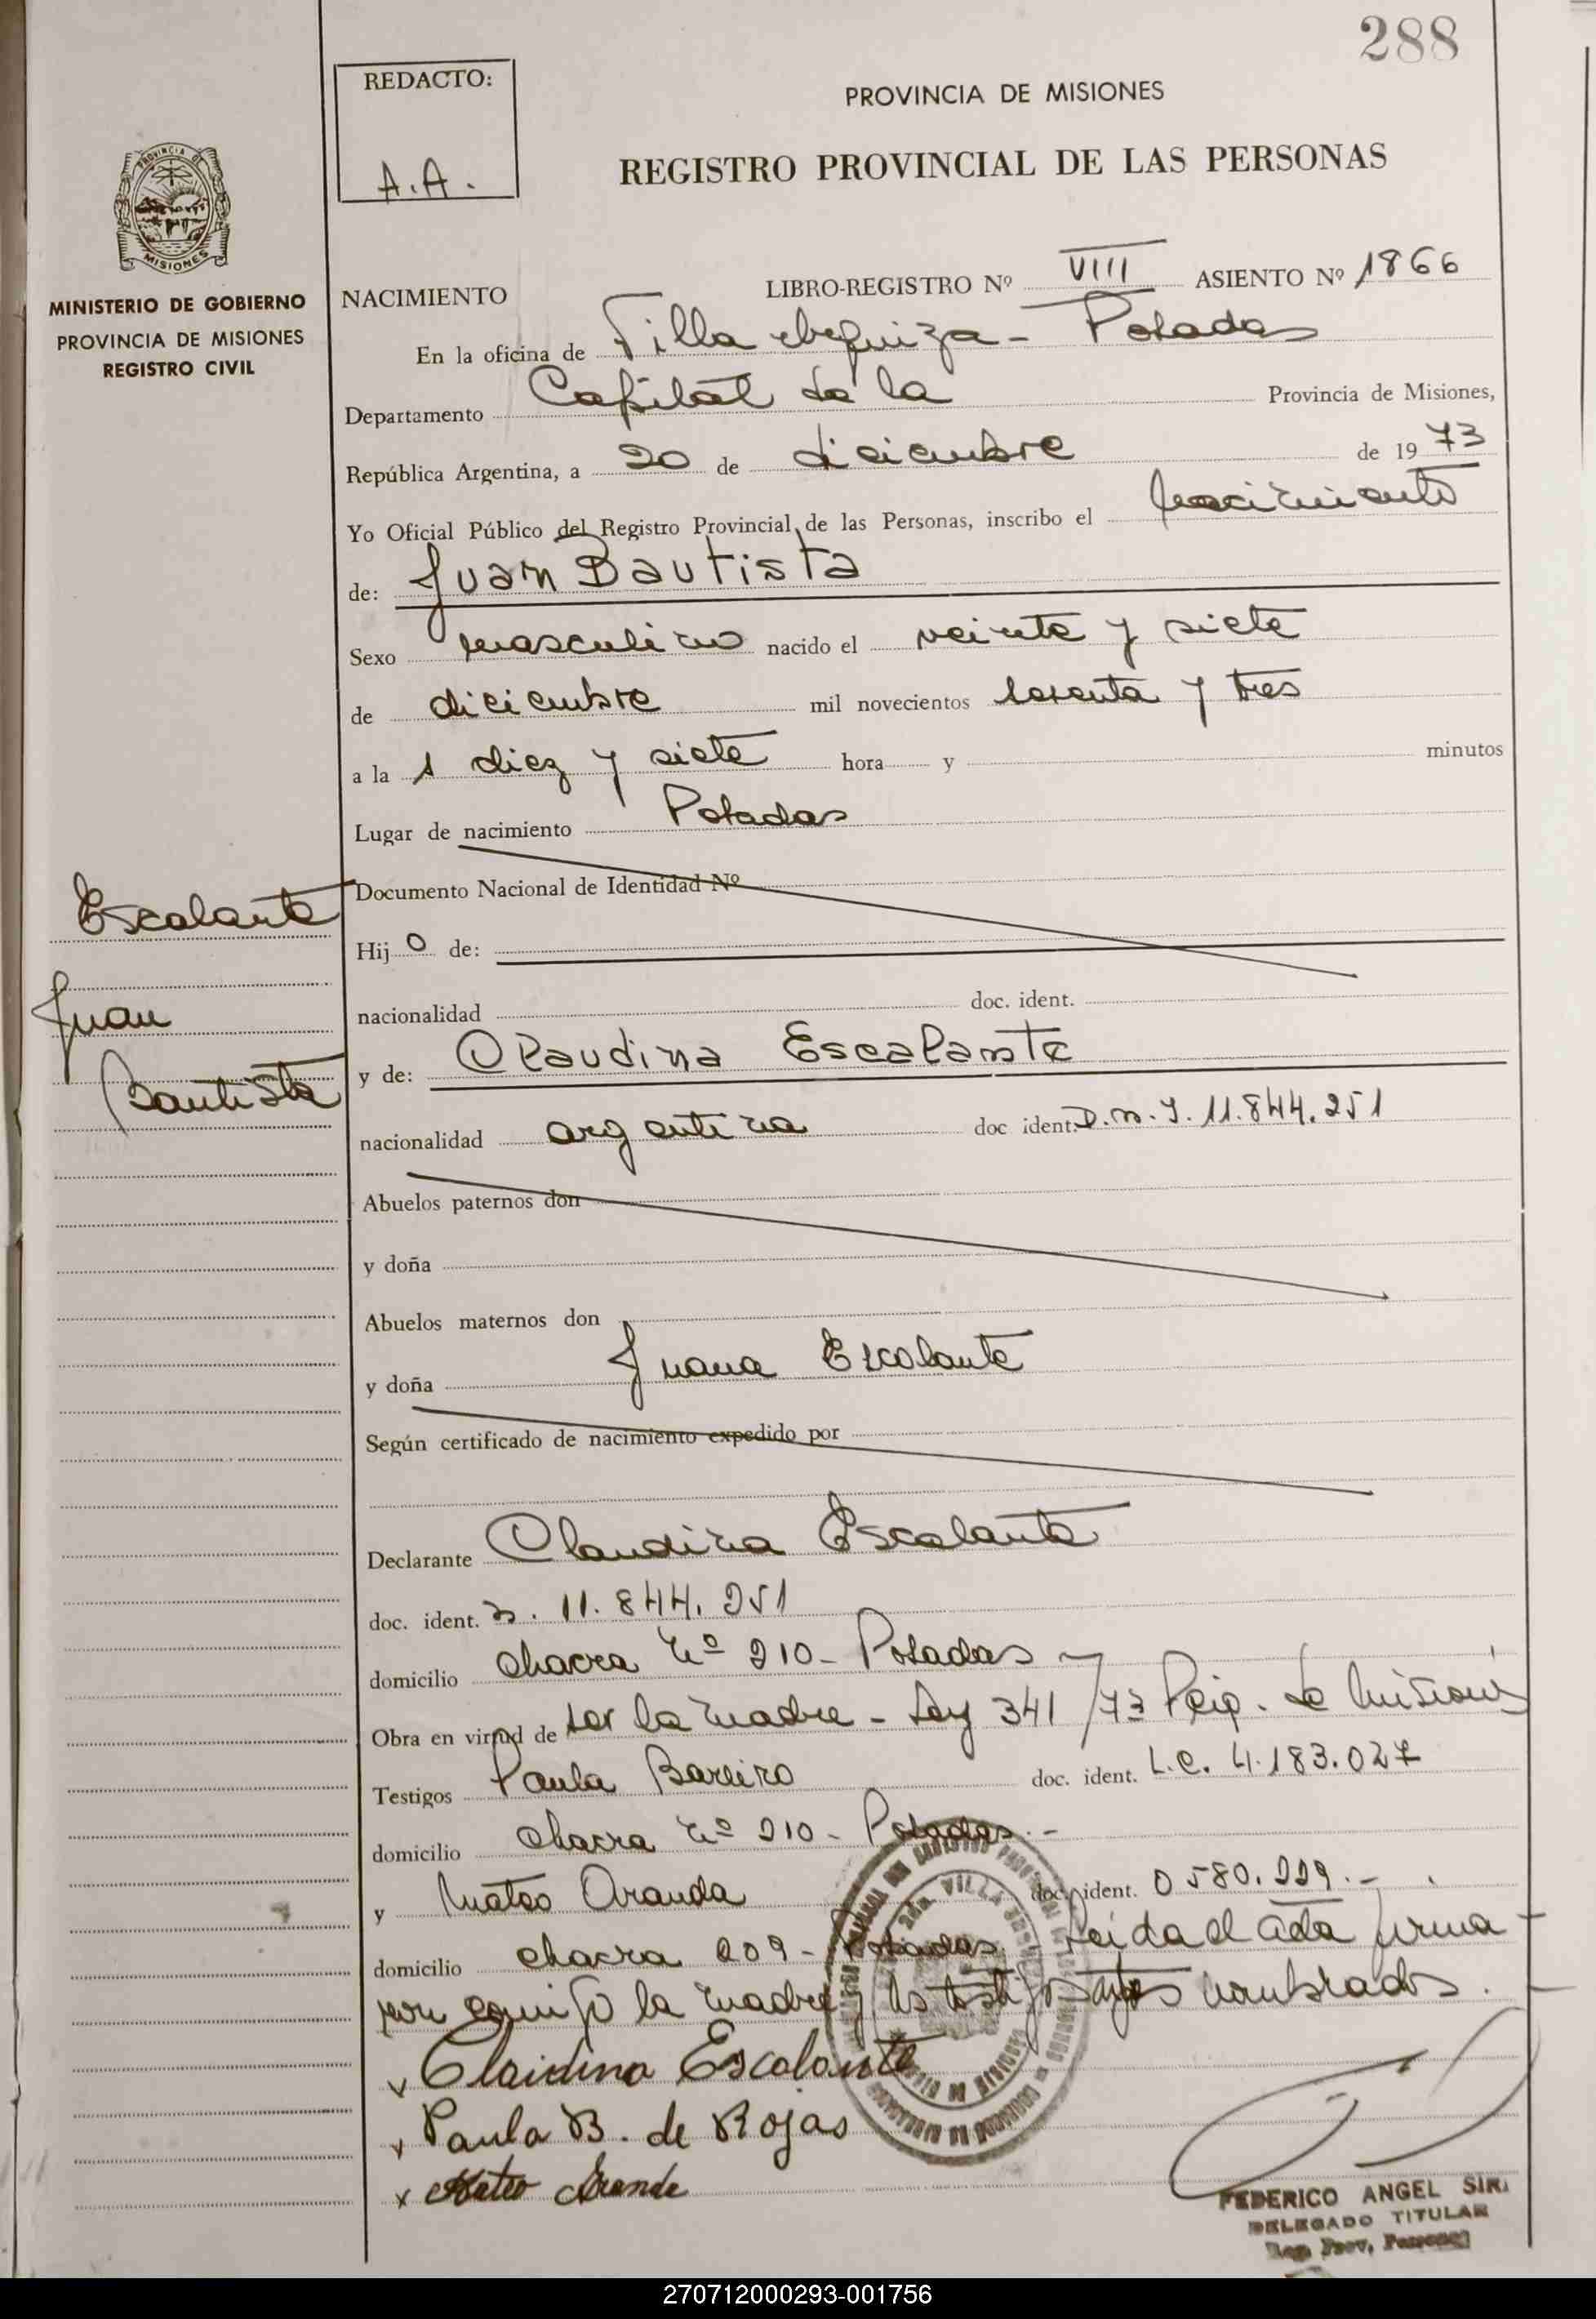 288
REDACTO:
A.A.
PROVINCIA DE MISIONES
REGISTRO PROVINCIAL DE LAS PERSONAS
PROVINCIA DE
MISIONES
MINISTERIO DE GOBIERNO
PROVINCIA DE MISIONES
REGISTRO CIVIL
NACIMIENTO LIBRO-REGISTRO Nº VIII ASIENTO Nº 1866
En la oficina de Villa Urquiza - Posadas
Departamento Capital de la Provincia de Misiones,
República Argentina, a 20 de diciembre de 1973
Yo Oficial Público del Registro Provincial de las Personas, inscribo el nacimiento
de: Juan Bautista
Sexo masculino nacido el veinte y siete
de diciembre mil novecientos sesenta y tres
a la s diez y siete hora y minutos
Lugar de nacimiento Posadas
Documento Nacional de Identidad Nº
Hijo de:
nacionalidad doc. ident.
y de: Claudina Escalante
nacionalidad argentina doc ident. D.N.I. 11.844.251
Abuelos paternos don
y doña
Abuelos maternos don
y doña Juana Escalante
Según certificado de nacimiento expedido por
Declarante Claudina Escalante
doc. ident. 11.844.251
domicilio chacra nº 210 - Posadas
Obra en virtud de ser la madre - Ley 341/73 de Misiones
Testigos Paula Bareiro doc. ident. L.C. 4.183.027
domicilio chacra nº 210 - Posadas.-
y Mateo Aranda doc. ident. 0580.229.-
domicilio chacra 209 - Posadas. Leida el acta firma-
ron conmigo la madre y los testigos antes nombrados.
Claidina Escalante
Paula B. de Rojas
Mateo Aranda
Escalante
Juan
Bautista
VILLA
FEDERICO ANGEL
DELEGADO TITULAR
Reg. Prov. Personas
270712000293-001756